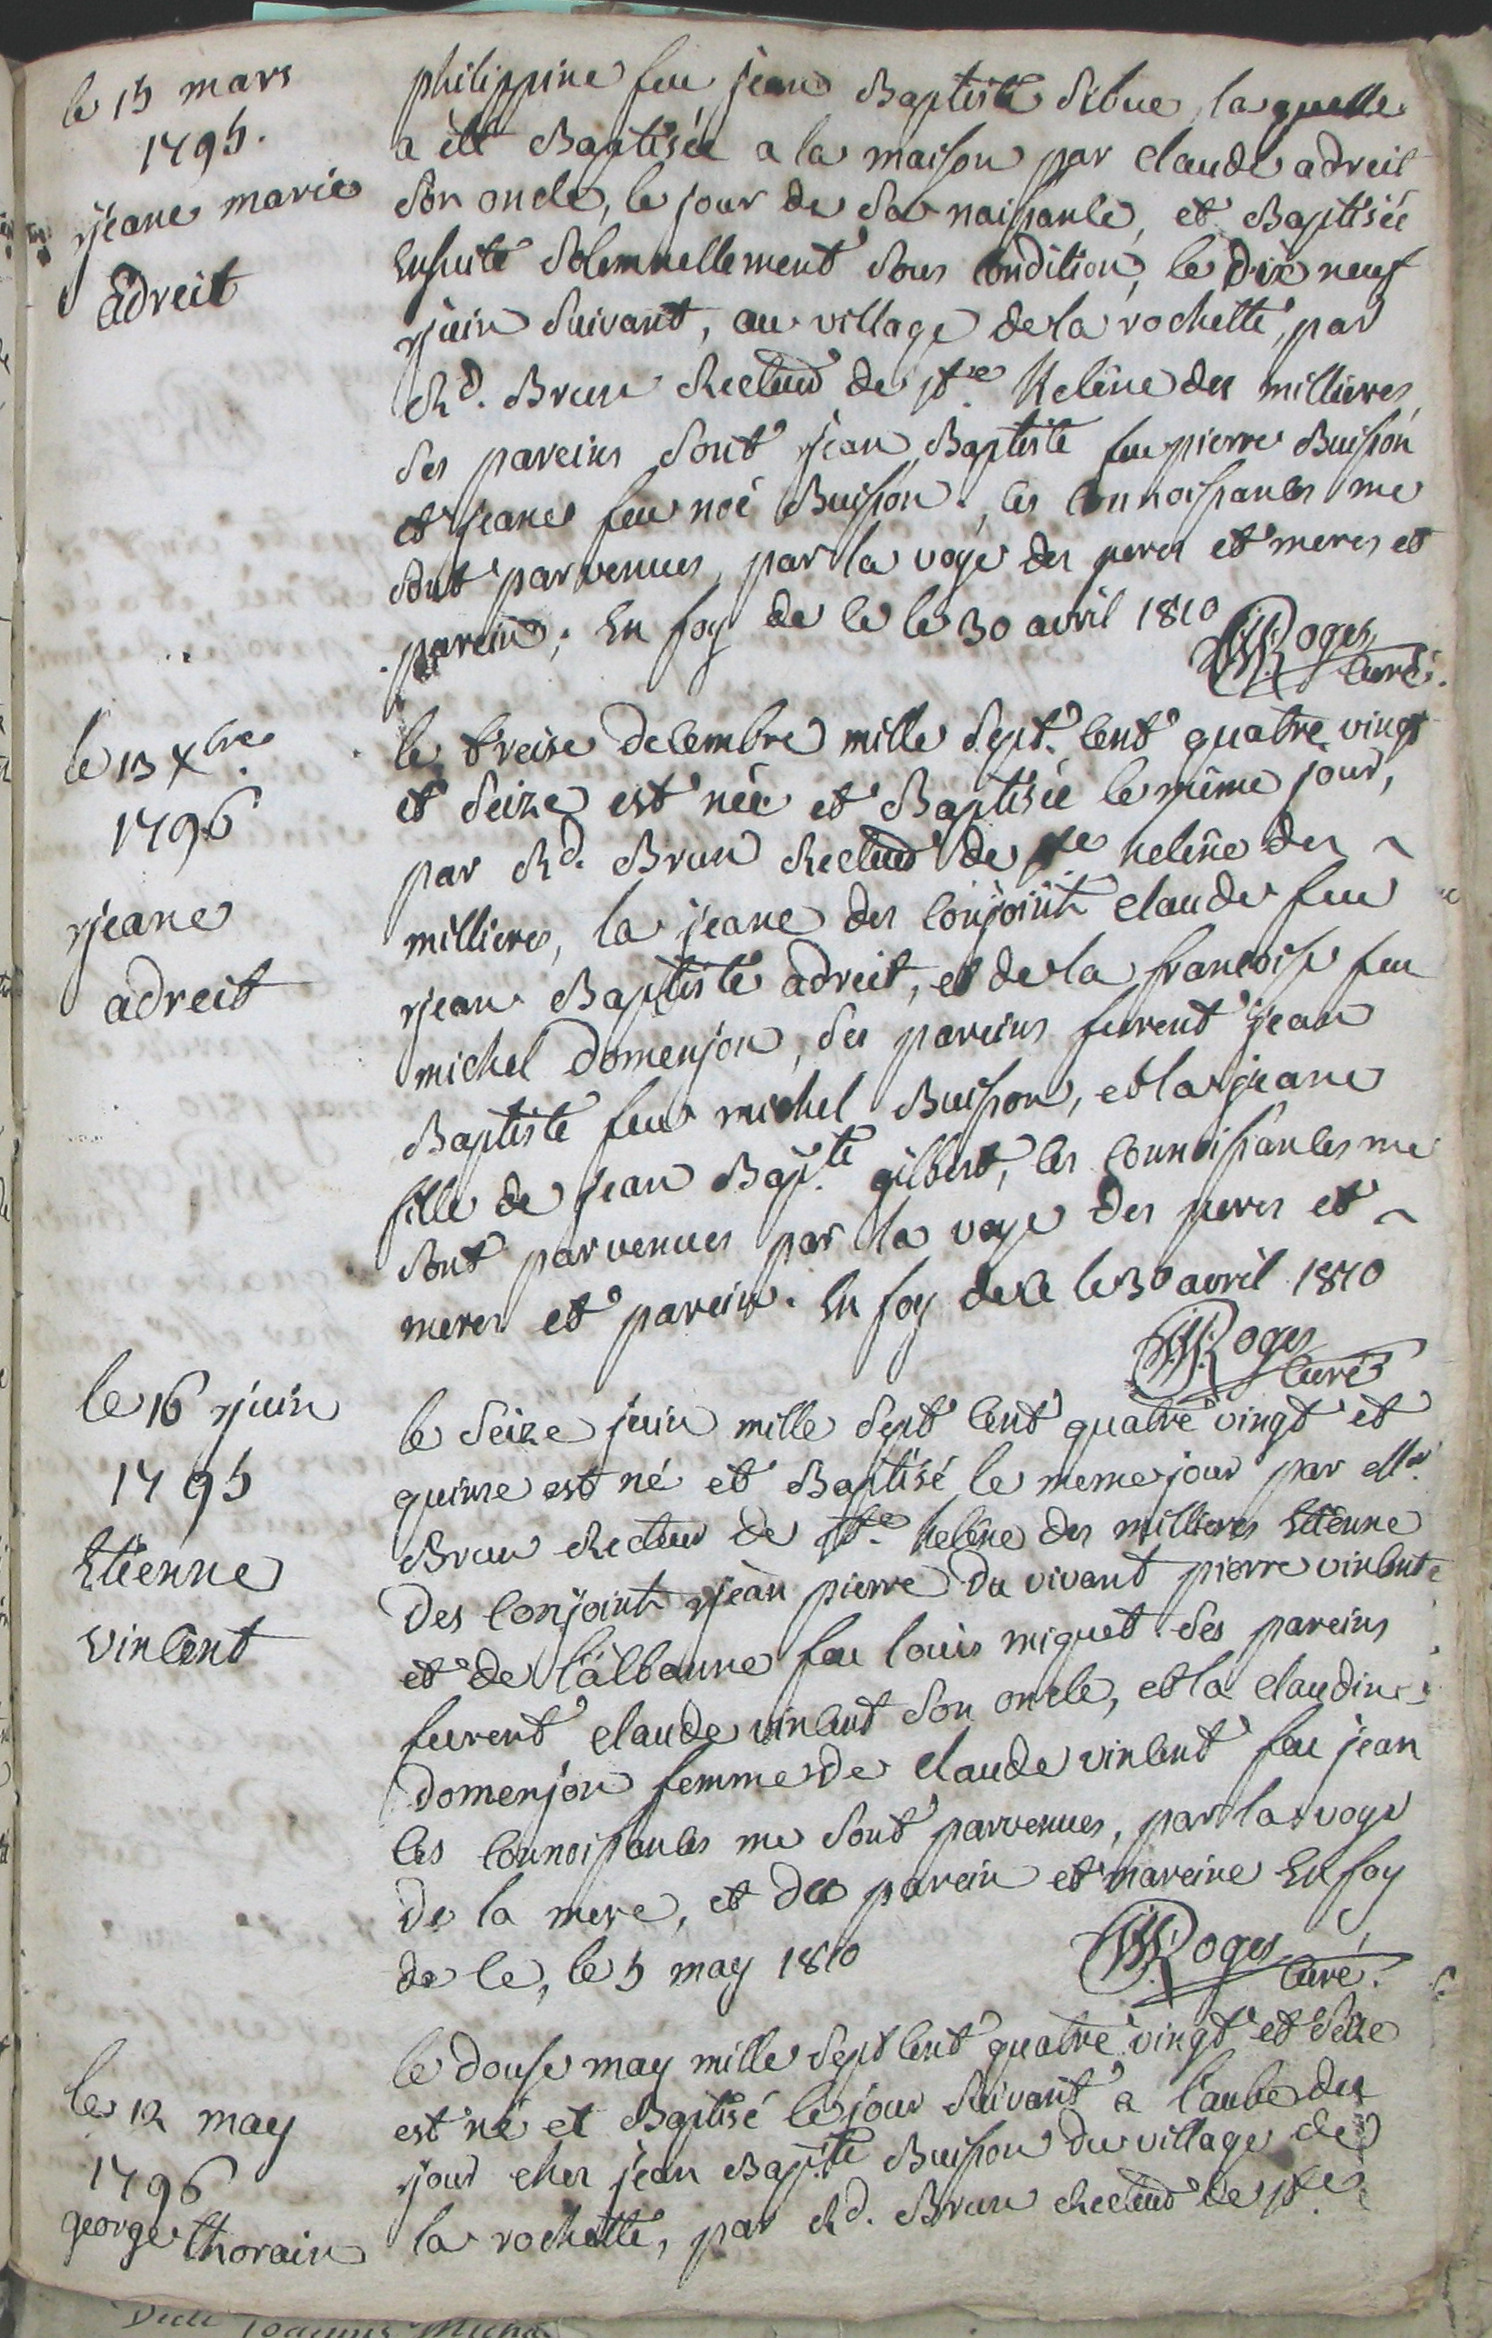 le 15 mars
1795.
jeane marie
adreit
philippine feu jean Baptiste Sibue, laquelle
a èté Baptisée a la maison par claude adreit
son oncle, le jour de sa naissance, et Baptisée
ensuite solemnellement sous condition, le dix neuf
juin suivant, au village de la rochette, par
Rd. Brun Recteur de ste helêne des millieres,
ses pareins sont jean Baptiste feu pierre Buisson
et jeane feu noé Buisson. les connoissances me
sont parvenues, par la voye des peres et meres et
parein; en foy de ce le 30 avril 1810
Roges
curé.
le 13 Xbre
1796
jeane
adreit
le treise decembre mille sept. cent quatre vingt
et seize est née et Baptisée le même jour,
par Rd. Brun Recteur de ste helêne des
millieres, la jeane des conjoint claude feu
jean Baptiste adreit, et de la francoise feu
michel Domenjon, ses pareins furent jean
Baptiste feu michel Buisson, et la jeane
fille de jean Bapte gilbert, les connoissances me
sont parvenues par la voye des peres et
meres et parein. en foy de ce le 30 avril 1810
Roges
curé
le 16 juin
1795
Etienne
vincent
le seize juin mille sept cent quatre vingt et
quinse est né et Baptisé le meme jour par Mr
Brun Recteur de ste. helêne des millieres Etienne
des conjoint jean pierre du vivant pierre vincent
et de l'albanne feu louis miguet ses pareins
furent claude vincent son oncle, et la claudine
domenjon femme de claude vincent feu jean
les connoissances me sont parvenues, par la voye
de la mere, et du parein et mareine en foy
de ce, le 5 may 1810
Roges
curé.
le 12 may
1796
george thorain
le douse may mille sept cent quatre vingt et seize
est né et Baptisé le jour suivant a l'aube du
jour ches jean Bapte Buisson du village de
la rochette, par Rd. Brun Recteur de ste